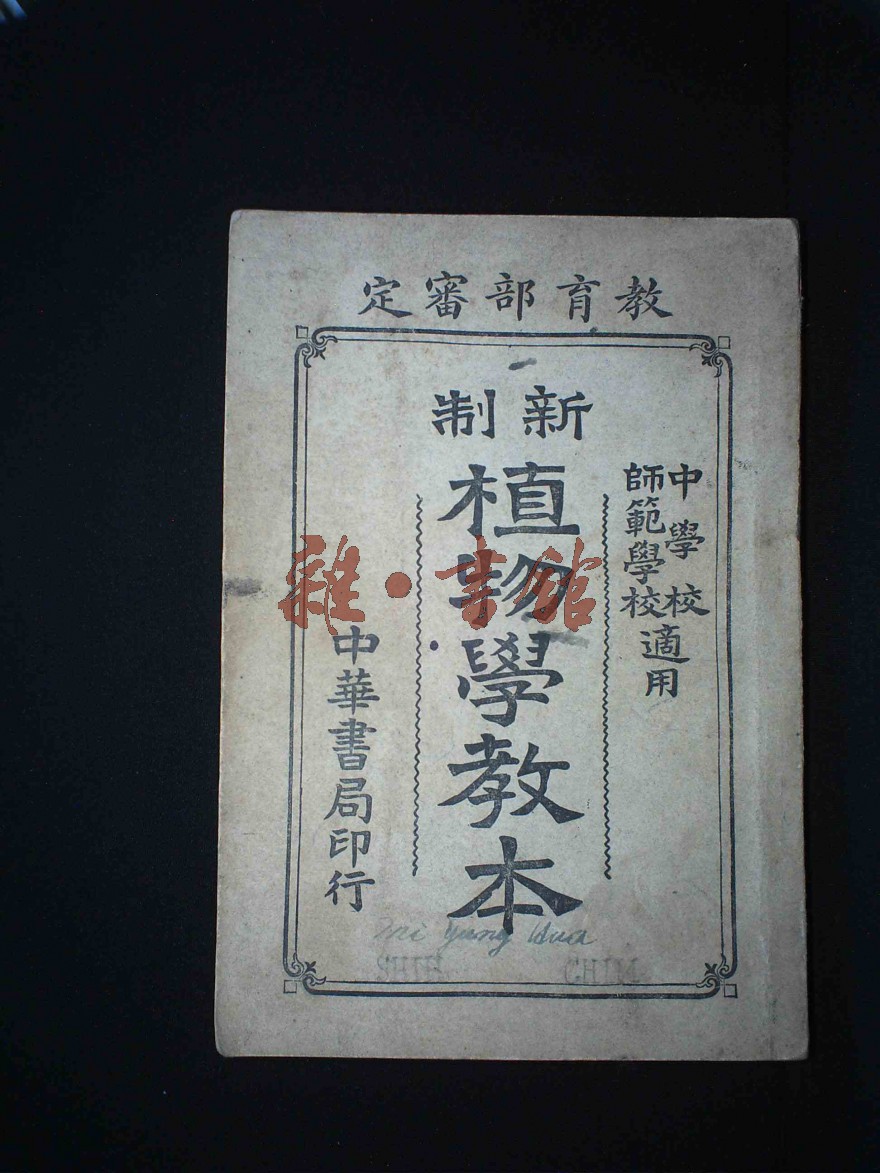 教育部審定
中學校
師範學校
適用
新制
植物學教本
中華書局印行
雜·書館
Mi Yung Hua